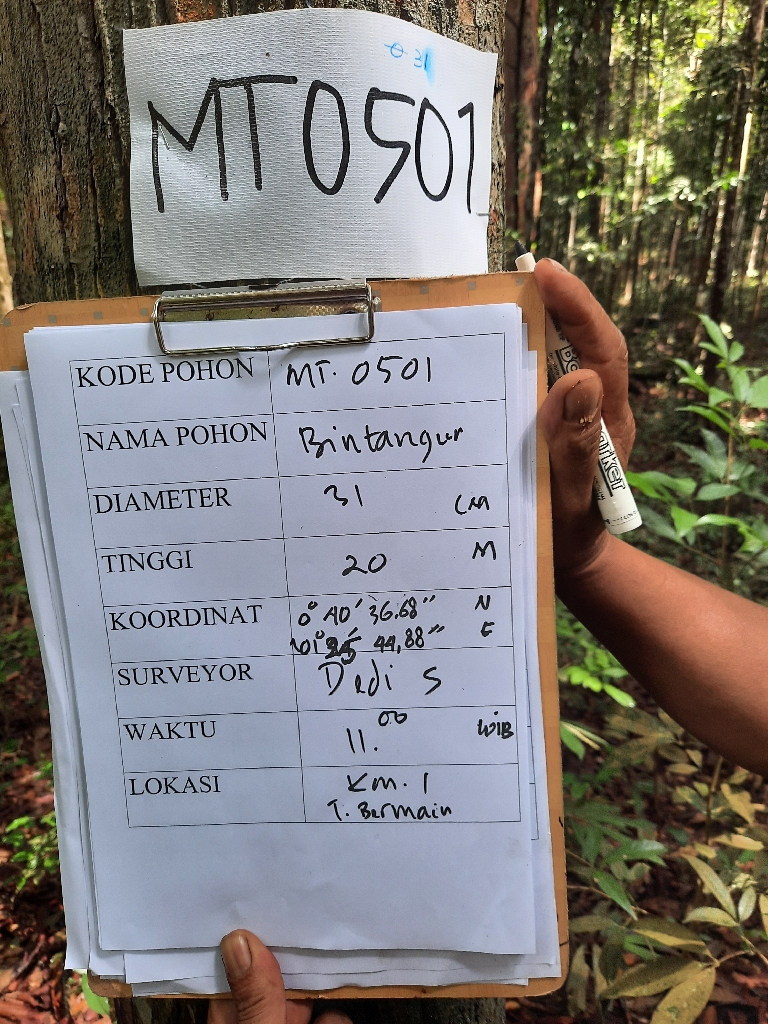 ɵ 31
MT0501
KODE POHON MT. 0501
NAMA POHON Bintangur
DIAMETER 31 CM
TINGGI 20 M
KOORDINAT 0° 40' 36.68" N
101° 25' 44,88" E
SURVEYOR Dedi S
WAKTU 11.00 WIB
LOKASI KM. 1
T. Bermain